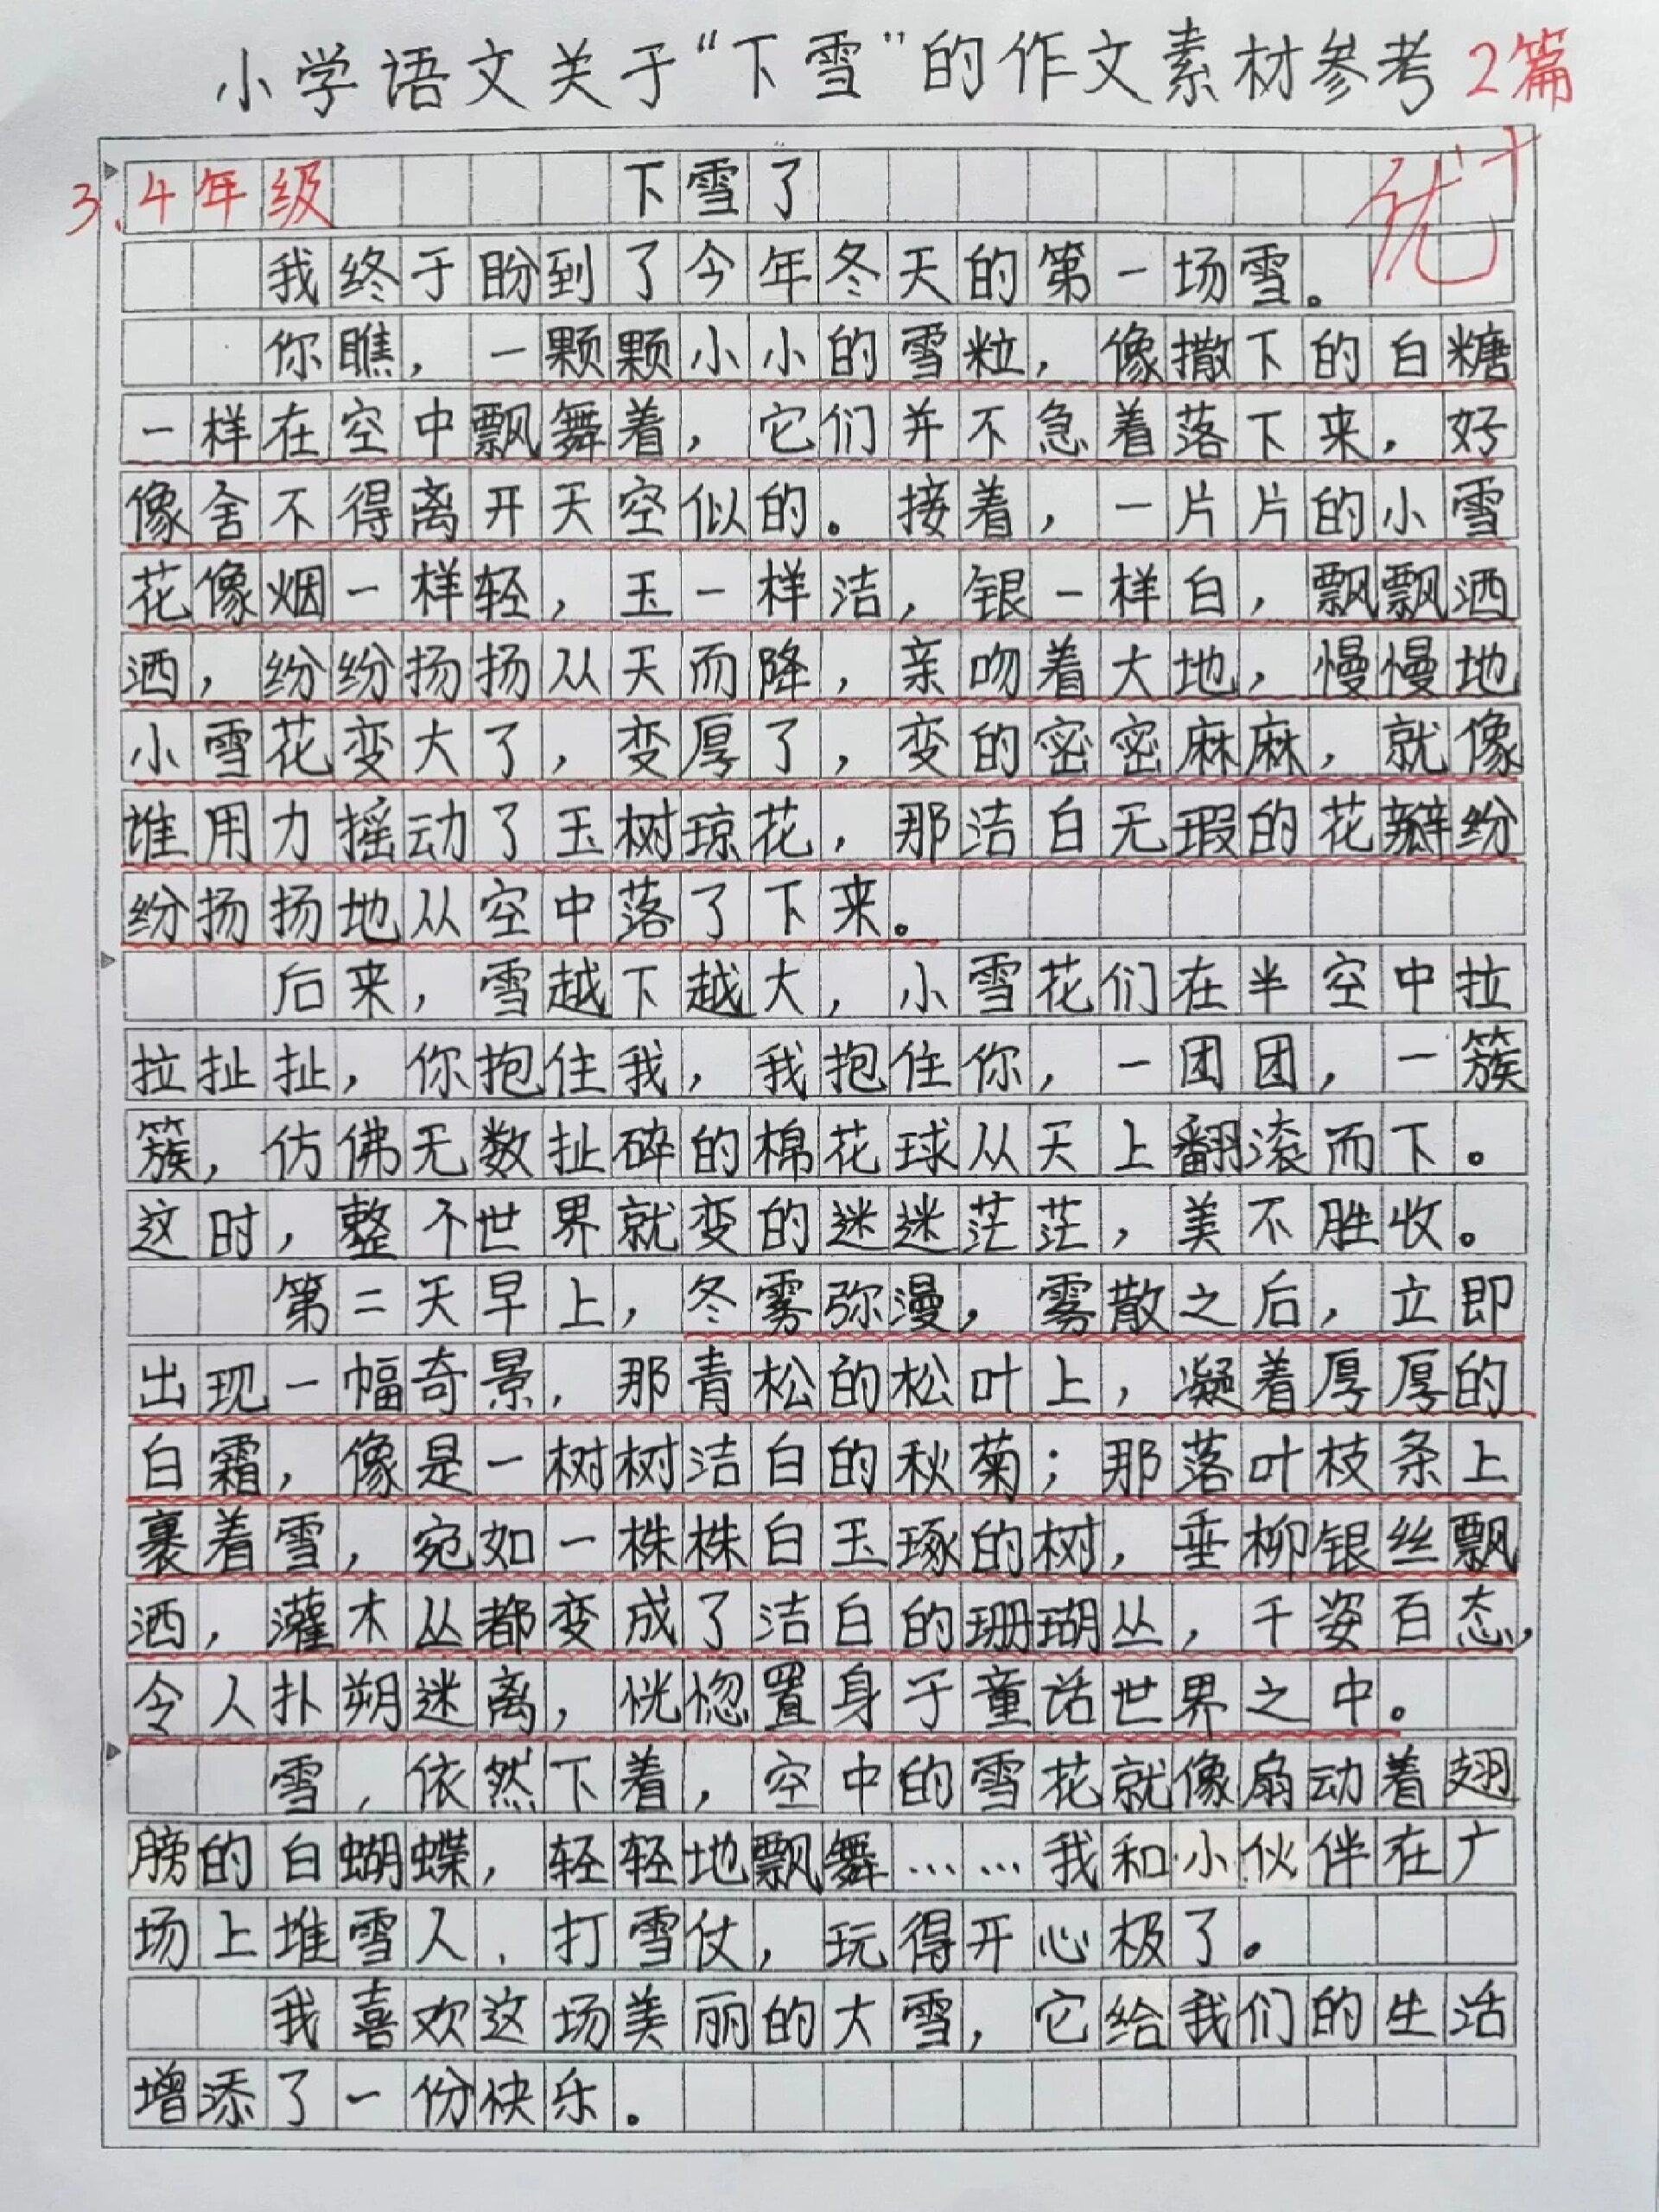 小学语文关于“下雪”的作文素材参考2篇
优+
3.4年级 下雪了
我终于盼到了今年冬天的第一场雪。
你瞧，一颗颗小小的雪粒，像撒下的白糖
一样在空中飘舞着，它们并不急着落下来，好
像舍不得离开天空似的。接着，一片片的小雪
花像烟一样轻，玉一样洁，银一样白，飘飘洒
洒，纷纷扬扬从天而降，亲吻着大地，慢慢地
小雪花变大了，变厚了，变的密密麻麻，就像
谁用力摇动了玉树琼花，那洁白无瑕的花瓣纷
纷扬扬地从空中落了下来。
后来，雪越下越大，小雪花们在半空中拉
拉扯扯，你抱住我，我抱住你，一团团，一簇
簇，仿佛无数扯碎的棉花球从天上翻滚而下。
这时，整个世界就变的迷迷茫茫，美不胜收。
第二天早上，冬雾弥漫，雾散之后，立即
出现一幅奇景，那青松的松叶上，凝着厚厚的
白霜，像是一树树洁白的秋菊；那落叶枝条上
裹着雪，宛如一株株白玉琢的树，垂柳银丝飘
洒，灌木丛都变成了洁白的珊瑚丛，千姿百态，
令人扑朔迷离，恍惚置身于童话世界之中。
雪，依然下着，空中的雪花就像扇动着翅
膀的白蝴蝶，轻轻地飘舞……我和小伙伴在广
场上堆雪人、打雪仗，玩得开心极了。
我喜欢这场美丽的大雪，它给我们的生活
增添了一份快乐。